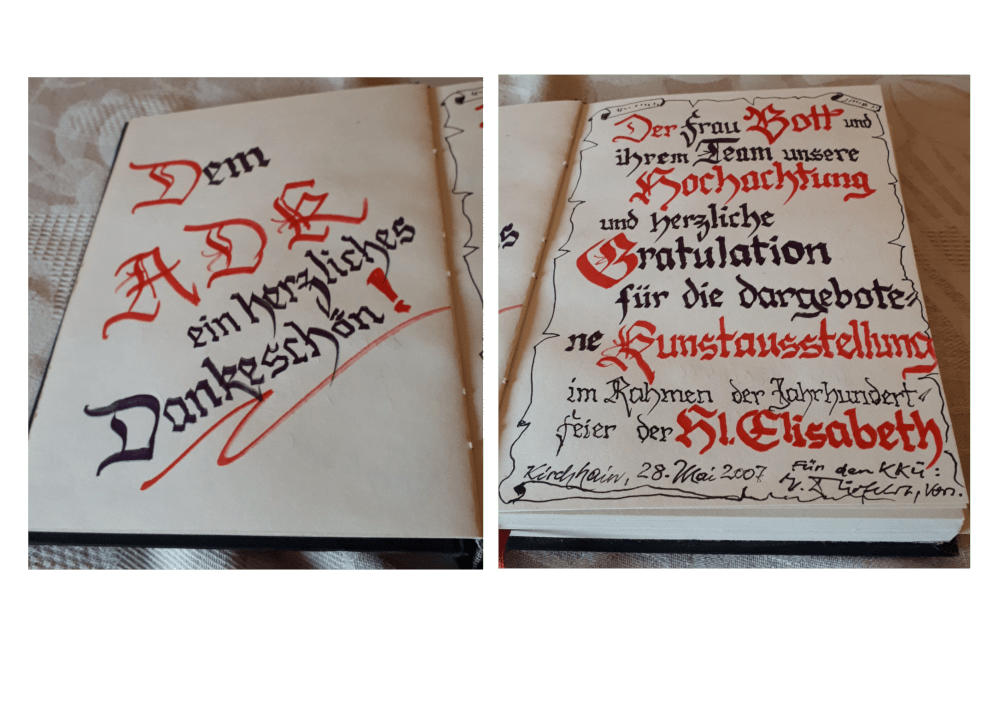 Dem
ADK
ein herzliches
Dankeschön!
Der Frau Bott und
ihrem Team unsere
Hochachtung
und herzliche
Gratulation
für die dargebote-
ne Kunstausstellung
im Rahmen der Jahrhundert-
feier der Hl. Elisabeth
Kirchhain, 28. Mai 2007
Für den KKV:
Vors.